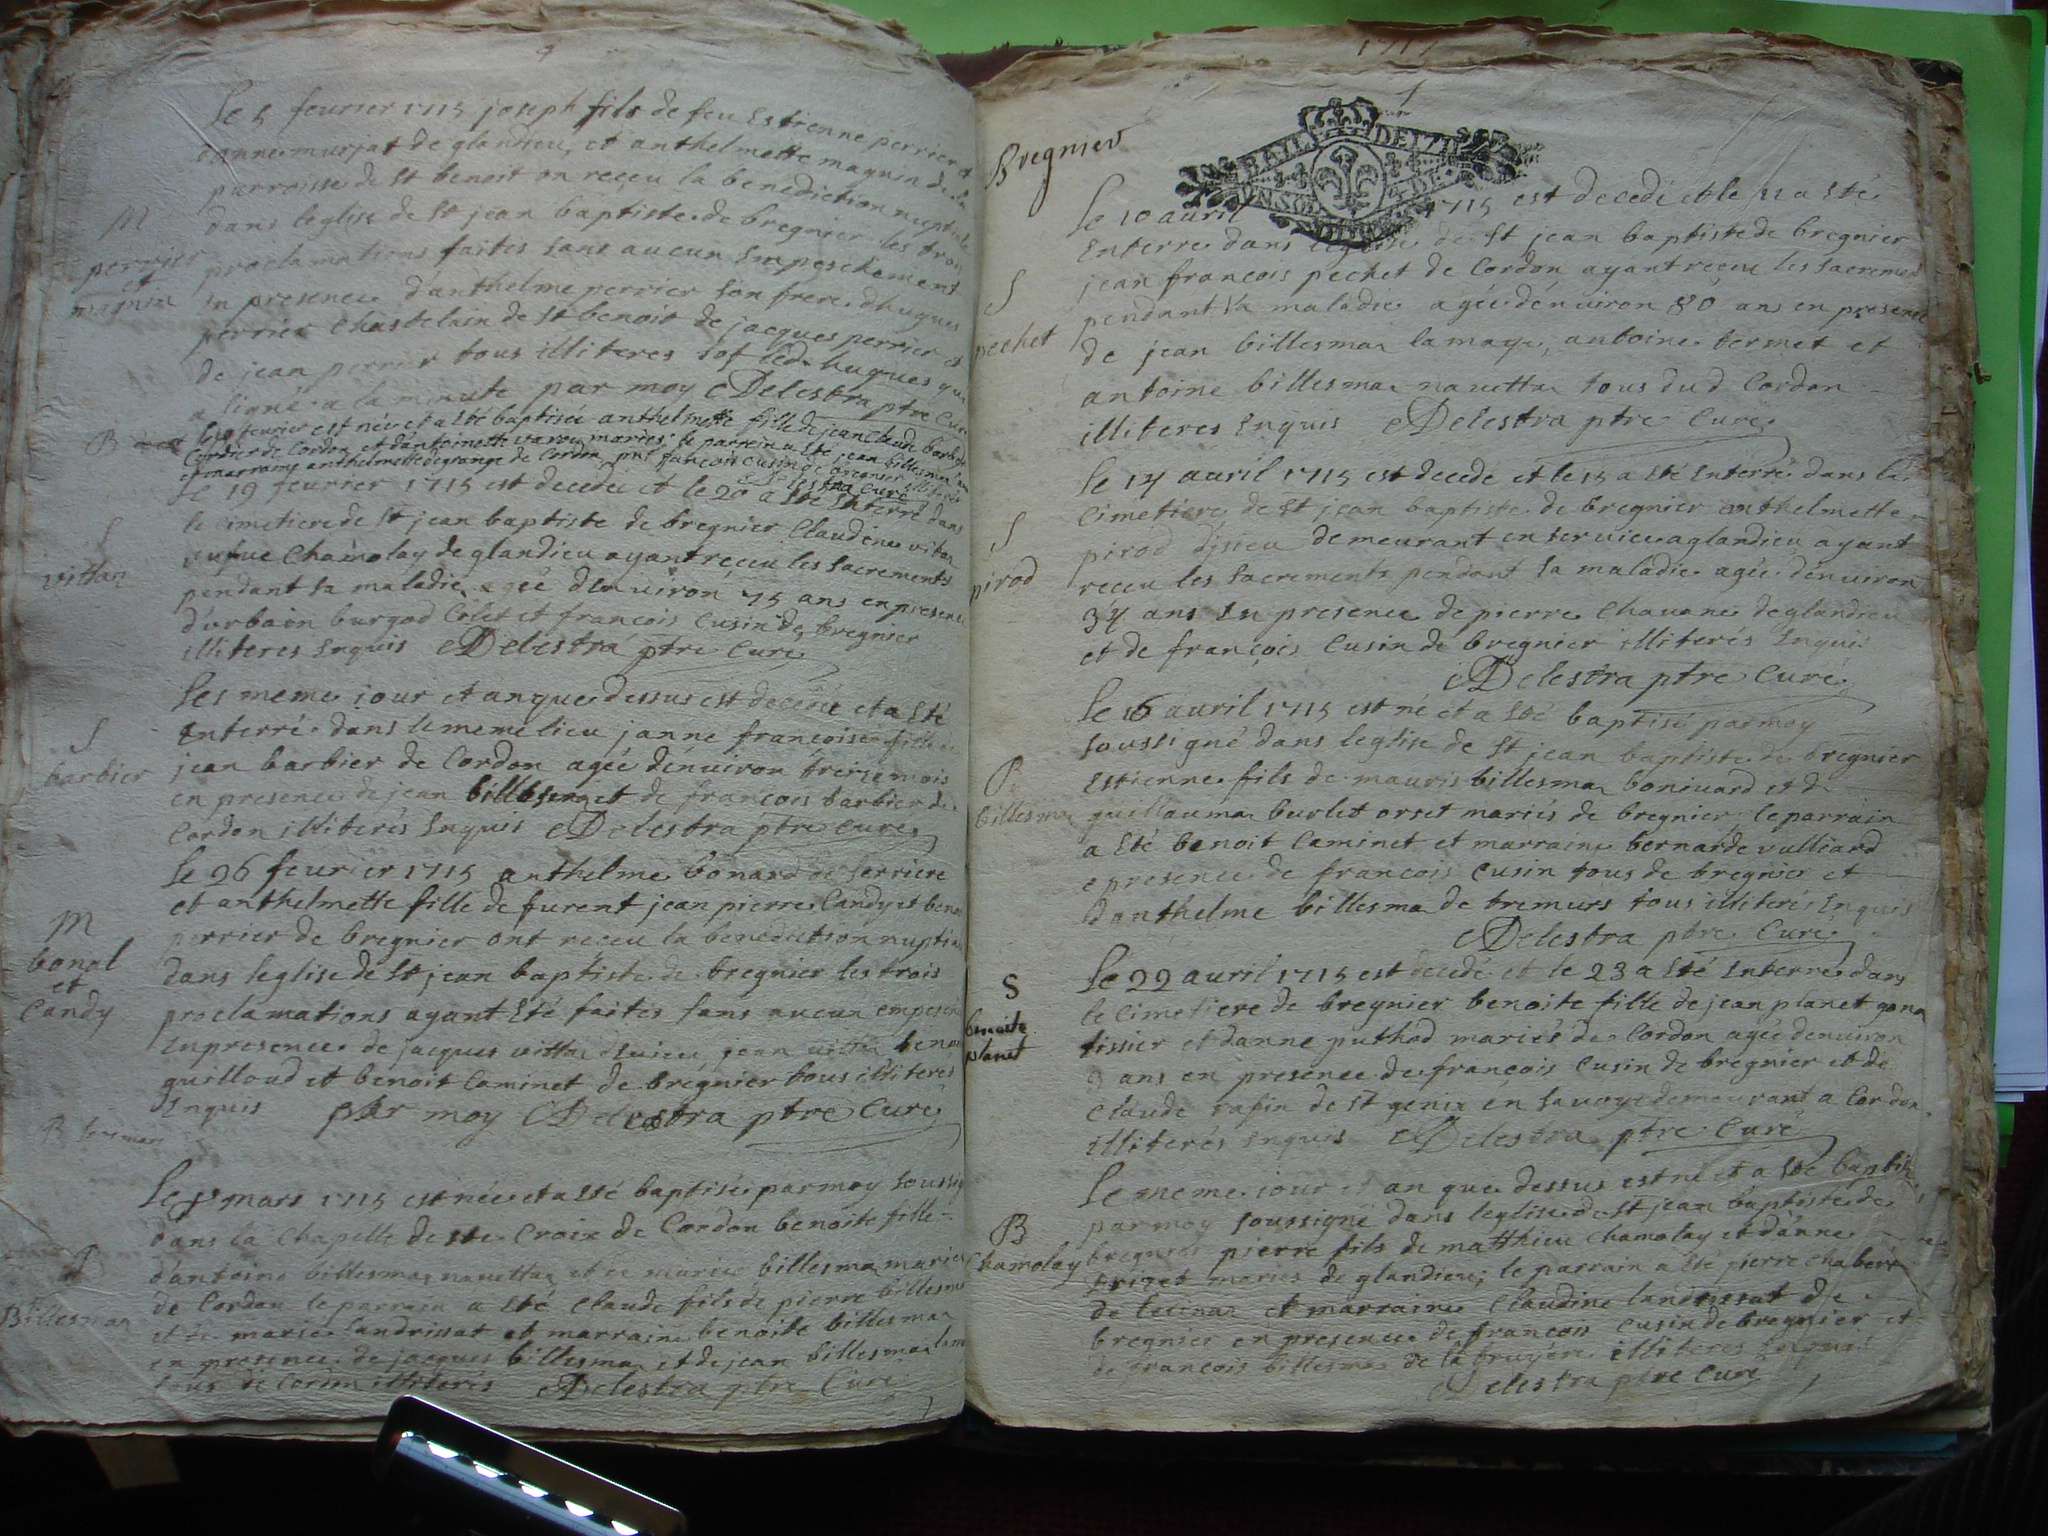 Le 5 feurier 1715 joseph fils de feu Estienne perrier et
danne murjat de glandieu, et anthelmette magnin de la
parroisse de St benoit on receu la benediction nuptiale
M
dans leglise de St jean baptiste de bregnier les trois
perrier
et
magnin
proclamations faites sans aucun Empeschement
en presence danthelme perrier son frere dhugues
perrier Chastelain de St benoit de jacques perrier et
de jean perrier tous illiteres sof led. hugues qui
a signé a la minute par moy Delestra ptre Curé
B
feurier est née et a Sté baptisée anthelmette fille de jean Claude barbier
Cordier de Cordon et dantoinette mariés le parrein a Sté jean billesma
et marraine anthelmette de Cordon françois cusin de bregnier illiterés
Delestra Curé
Le 19 feurier 1715 est decedée et le 20 a Sté Enterré dans
S
vittan
le Cimetiere de St jean baptiste de bregnier Claudine vitan
vefue Chamolay de glandieu ayant receu les Sacrements
pendant sa maladie agée denuiron 75 ans en presence
durbain burgod Colet et francois Cusin de bregnier
illiteres Enquis Delestra ptre Curé
Les meme jour et an que dessus est decedée et a Sté
S
barbier
Enterré dans le meme lieu janne francoise fille de
jean barbier de Cordon agée denuiron treise mois
en presence de jean billesma et de francois barbier de
Cordon illiterés Enquis Delestra ptre curé
Le 26 feurier 1715 anthelme bonard de Serriere
et anthelmette fille de furent jean pierre Candy et benoite
M
bonal
et
Candy
perrier de bregnier ont receu la benediction nuptiale
dans leglise de St jean baptiste de bregnier les trois
proclamations ayant Sté faites sans aucun
En presence de jacques vittan jean vittan benoit
guilloud et benoit Caminet de bregnier tous illiterés
Enquis par moy Delestra ptre Curé
B
Le mars 1715 est née et a Sté baptisée par moy soussigné
dans la Chapelle de Ste Croix de Cordon benoite fille
B
Billesmaz
dantoine billesmaz nauettaz et de marie billesma mariés
de Cordon le parrein a Sté Claude fils de pierre billesmaz
et de marie Landrissat et marraine benoite billesmaz
en presence de jacques billesmaz et de jean billesmaz
tous de Cordon illiterés Delestra ptre Curé
Bregnier
1
Le 10 auril 1715 est decedé et le 11 a Sté
Enterré dans leglise de St jean baptiste de bregnier
S
pechet
jean francois pechet de Cordon ayant receu les Sacremen
pendant sa maladie agée denuiron 80 ans en presence
de jean billesmaz lamaye, antoine termet et
antoine billesmaz nauettaz tous dud Cordon
illiteres Enquis Delestra ptre Curé
Le 14 auril 1715 est decede et le 15 a Sté Enterré dans le
S
pirod
Cimetiere de St jean baptiste de bregnier anthelmette
pirod demeurant en seruice a glandieu ayant
receu les Sacrements pendant sa maladie agée denuiron
34 ans En presence de pierre Chauane de glandieu
et de françois Cusin de bregnier illiterés Enquis
Delestra ptre Curé
Le 16 auril 1715 est né et a Sté baptisé par moy
soussigné dans leglise de St jean baptiste de bregnier
B
billesma
Estienne fils de mauris billesmaz bonuard et de
guillaumaz burlet orset mariés de bregnier, le parrain
a Sté benoit Caminet et marraine bernarde vulliard
presence de francois Cusin tous de bregnier et
danthelme billesma de tremurs tous illiterés Enquis
Delestra ptre Curé
S
benoite
planet
Le 22 auril 1715 est decedé et le 23 a Sté Enterrée dans
le Cimetiere de bregnier benoite fille de jean planet
tissier et danne puthod mariés de Cordon agée denuiron
9 ans en presence de francois Cusin de bregnier et de
Claude rafin de St genix en Sauoye demeurant a Cordon
illiterés Enquis Delestra ptre Curé
Le meme jour et an que dessus est né et a Sté baptisé
B
Chamolay
par moy soussigné dans leglise de St jean baptiste de
bregnier pierre fils de matthieu Chamolay et danne
mariés de glandieu, le parrain a Sté pierre Chabert
de et marraine Claudine landrissat de
bregnier en presence de francois Cusin de bregnier et
de francois billesmaz de la bruyere illiteres Enquis
Delestra ptre Curé